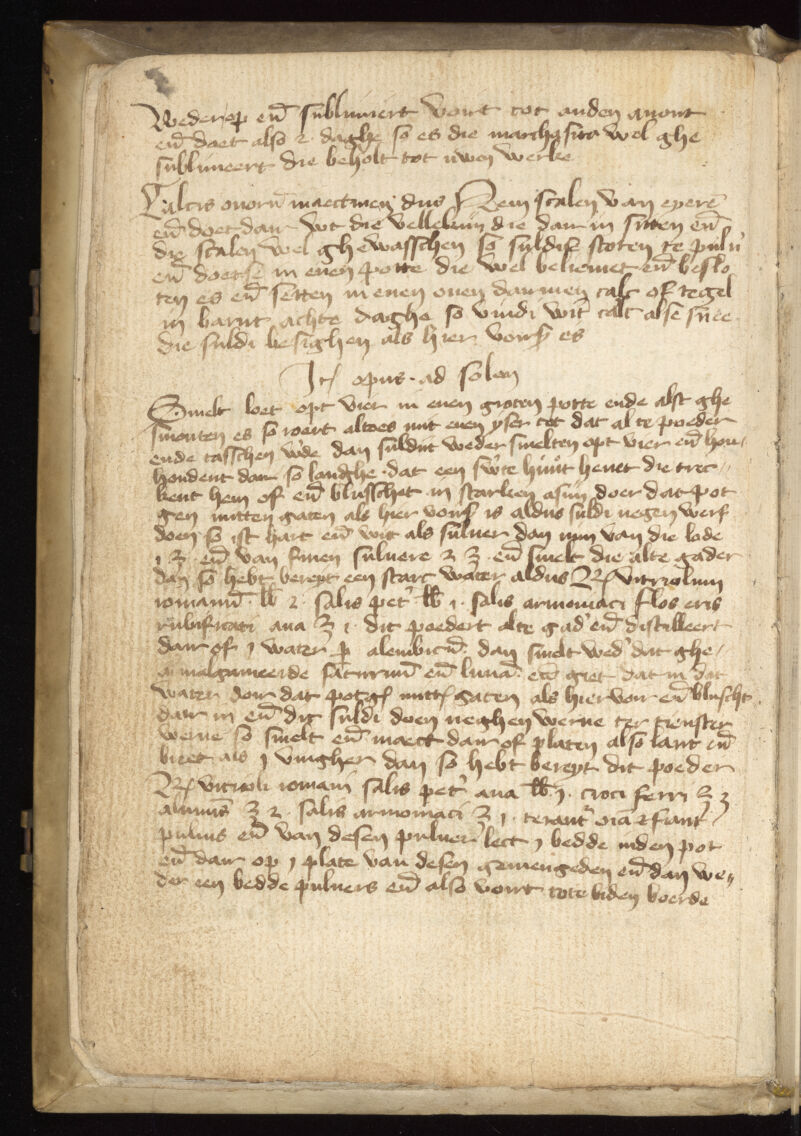 Wederop en̄ sublimiert voirt tot anden auont
en̄ doet also 2 daghe so es die marchasita wel ghe
sublimeert die beholt tot uwen werke
Calcis ouorū maectmen dus Nem scalen van eyerē
en̄ doet dair wt die vellekijn die dair in sitten en̄
die scalen wel ghewasschen so suldise stoten te pulu'
en̄ doetse in enen potte die wel beliemet en̄ beslo
ten es en̄ setten in enen ouen dairmen calc of tegel
in barnt achte daghe so vindi wit calc alse snee
die suldi besighen als hier voirs es
Itē opus ad solem
Smelt loet opt vier in enen groten potte ende alst ghe
smouten es so roert altoes mit enen yser tot dat al te poeder
ende tasschen w'de dan suldijt weder smelten opt vier en̄ hou
houdent dair so langhe dat een sw'te huut heuet die trec
kent hem of en̄ blusschet in starken asijn doer dat pot
gen mitten gaten als hier voirs is aldus suldi negen werf
doen so ist hart en̄ wit als siluer dan nim van die lode
1 ℥ en̄ van finen siluere 2 ℥ en̄ smelt die alte gader
dan so hebt bereyt een starc water aldus Rx vitriolum
romanū lb 2 salis pet' lb 1 salis armoniaci flos eris
rubificati ana ℥ 1 dit poedert alte gad' en̄ distilleert
dair of 1 water p alembicū dan smelt wed' dat ghe
amalgameerde saturnū en̄ lunā en̄ giet dat in dat
water doir dat potgē mittē gaten als hier voir en̄ bluscht
dair in en̄ dit suldi doen neghen werue ter tienster
werue so smelt en̄ maect dair of platen also lanc en̄
breet als 1 vingher dan so hebt bereyt dit poeder
Rx vitrioli romani salis pet' ana lb 1 croci ferri ℥ 3
aluminis ℥ 2 salis armoniaci ℥ 1 terant' oīa 2 fiant
puluis en̄ van desen puluer lect 1 bedde inden pot
en̄ dair op 1 plate van desen gemengeden en̄ dan we
der een bedde puluers en̄ also voirt tote biden boerde